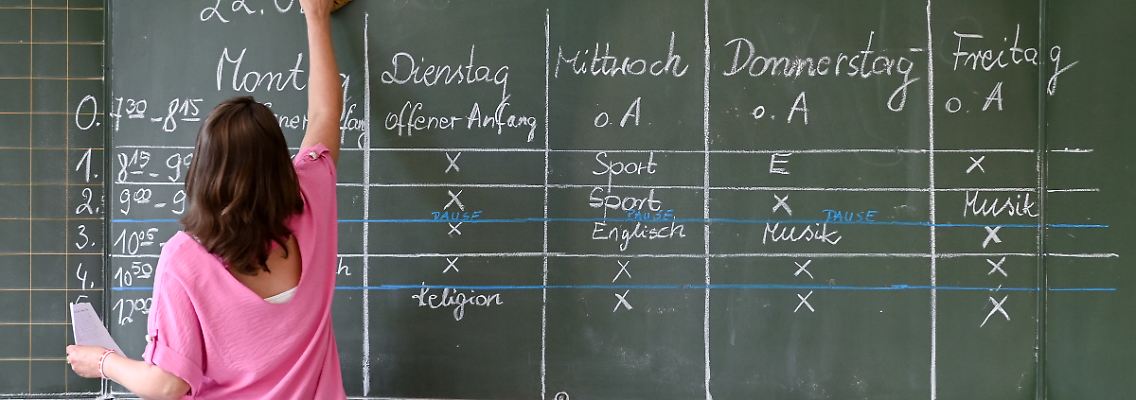 22.
Mont g Dienstag Mittwoch Donnerstag Freitag
0. 7³⁰ - 8¹⁵ offener Anfang o. A o. A o. A
1. 8¹⁵ - 9 X Sport E X
2. 9⁰⁰ - 9 X Sport X Musik
PAUSE PAUSE PAUSE
3. 10⁰⁵ - X Englisch Musik X
4. 10⁵⁰ h X X X X
12⁰⁰ Religion X X X